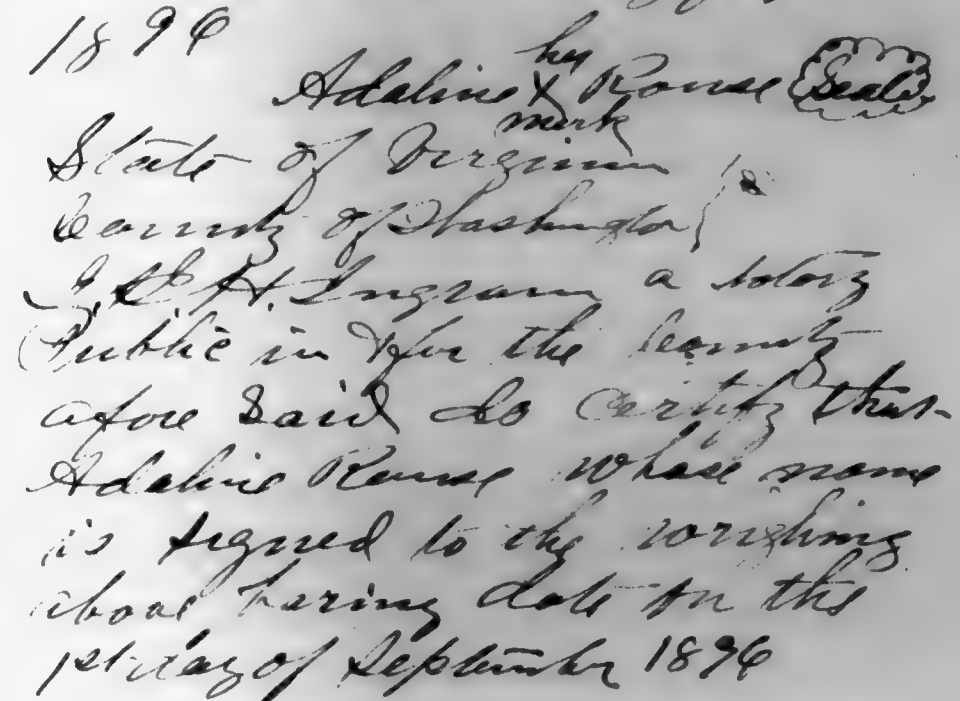 1896
her
Adaline X Rouse Seal
mark
State of Virginia
County of Washington
I, S. H. Ingram a notory
Public in & for the County
afore Said do Certify that
Adaline Rouse whose name
is signed to the
above baring date on the
1st day of September 1896